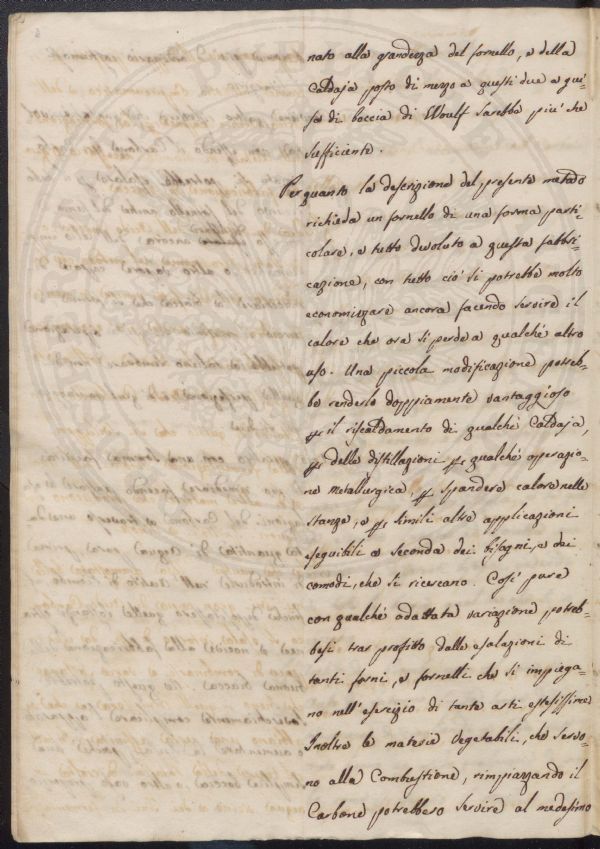 nato alla grandezza del fornello, e della
Caldaja posto di mezzo a questi due a gui-
sa di boccia di Woulf sarebbe piu' che
sufficiente.
Per quanto la descrizione del presente metodo
richieda un fornello di una forma parti-
colare, e tutto devoluto a questa fabbri-
cazione, con tutto ciò si potrebbe molto
economizzare ancora facendo servire il
calore che ora si perde a qualche altro
uso. Una piccola modificazione potreb-
be renderlo doppiamente vantaggioso
p il riscaldamento di qualche Caldaja,
p delle distillazioni p qualche operazio-
ne Metallurgica, p spandere calore nelle
stanze, e p simili altre applicazioni
eseguibili a seconda dei bisogni, e dei
comodi, che si ricercano. Cosi' pure
con qualche adattata variazione potreb-
besi trar profitto dalle esalazioni di
tanti forni, e fornelli che si impiega-
no nell'esercizio di tante arti estesissime
Inoltre le materie vegetabili, che servo-
no alla Combustione, rimpiazzando il
Carbone potrebbero servire al medesimo